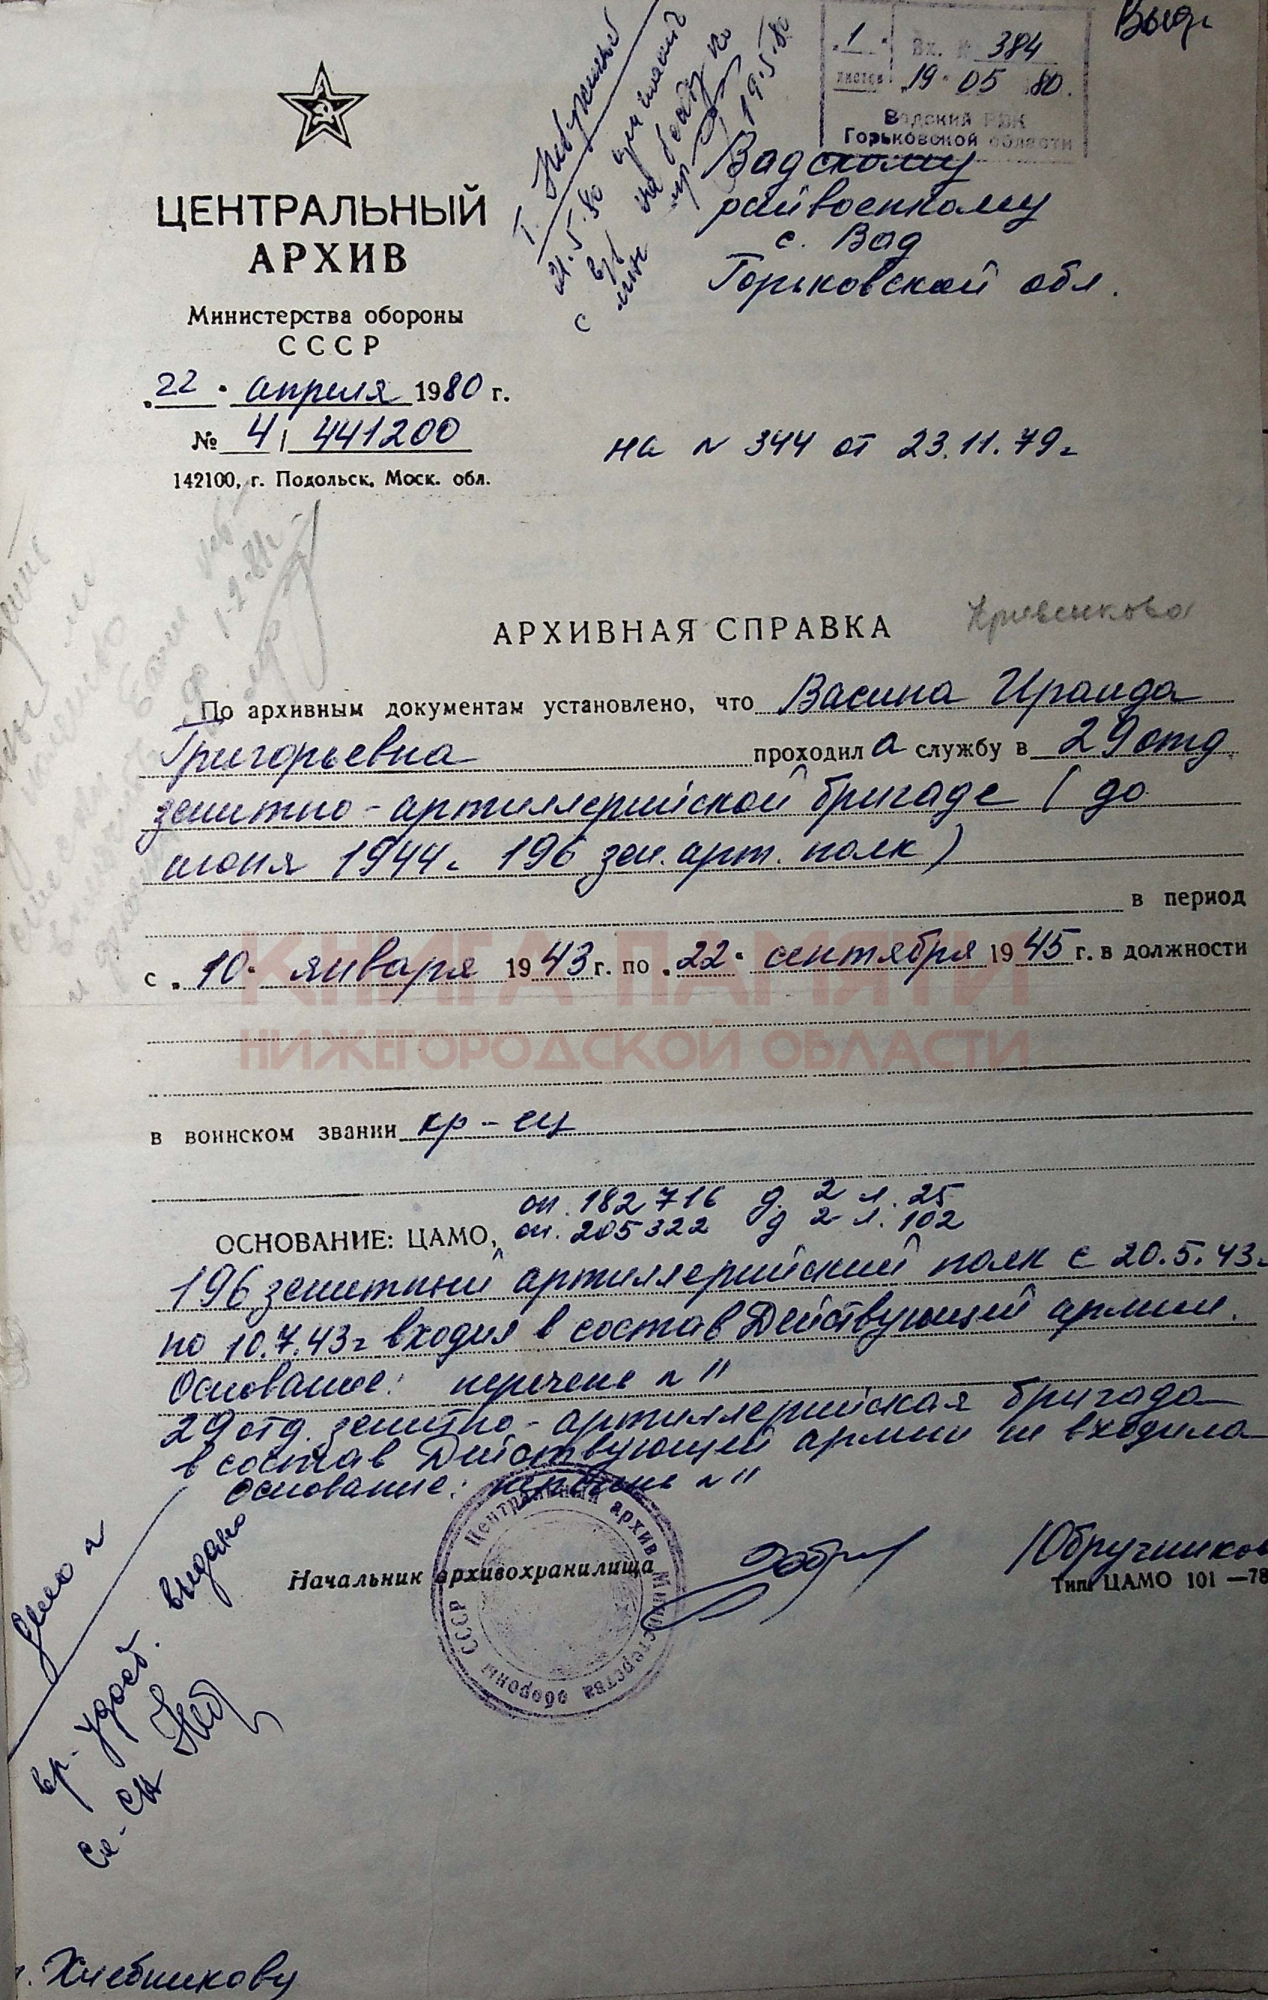 Выд.
1
листов
Вх. № 384
19 05 80.
Вадский РВК
Горьковской области
Т.
21.5.80
19.5.80
ЦЕНТРАЛЬНЫЙ
АРХИВ
Министерства обороны
СССР
„22" апреля 1980 г.
№ 4/441200
142100, г. Подольск, Моск. обл.
Вадскому
райвоенкому
с. Вад
Горьковской обл.
на № 344 от 23.11.79г
1-2-81г
АРХИВНАЯ СПРАВКА
Кривенкова
По архивным документам установлено, что Васина Ираида
Григорьевна проходила службу в 29 отд
зенитно-артиллерийской бригаде (до
июня 1944г 196 зен. арт. полк)
в период
с „10" января 1943 г. по „22" сентября 1945 г. в должности
в воинском звании кр-ец
оп. 182716 д. 2 л. 25
ОСНОВАНИЕ: ЦАМО, оп. 205322 д 2 л. 102
196 зенитный артиллерийский полк с 20.5.43г
по 10.7.43г входил в состав Действующей армии.
Основание: перечень №11
29 отд. зенитно-артиллерийская бригада
в состав Действующей армии не входила
Основание: перечень №11
Начальник архивохранилища
/Обручников
Тип. ЦАМО 101—78
Центральный архив Министерства обороны СССР
Дело №
вр. удост. выдано
Хлебникову
КНИГА ПАМЯТИ
НИЖЕГОРОДСКОЙ ОБЛАСТИ